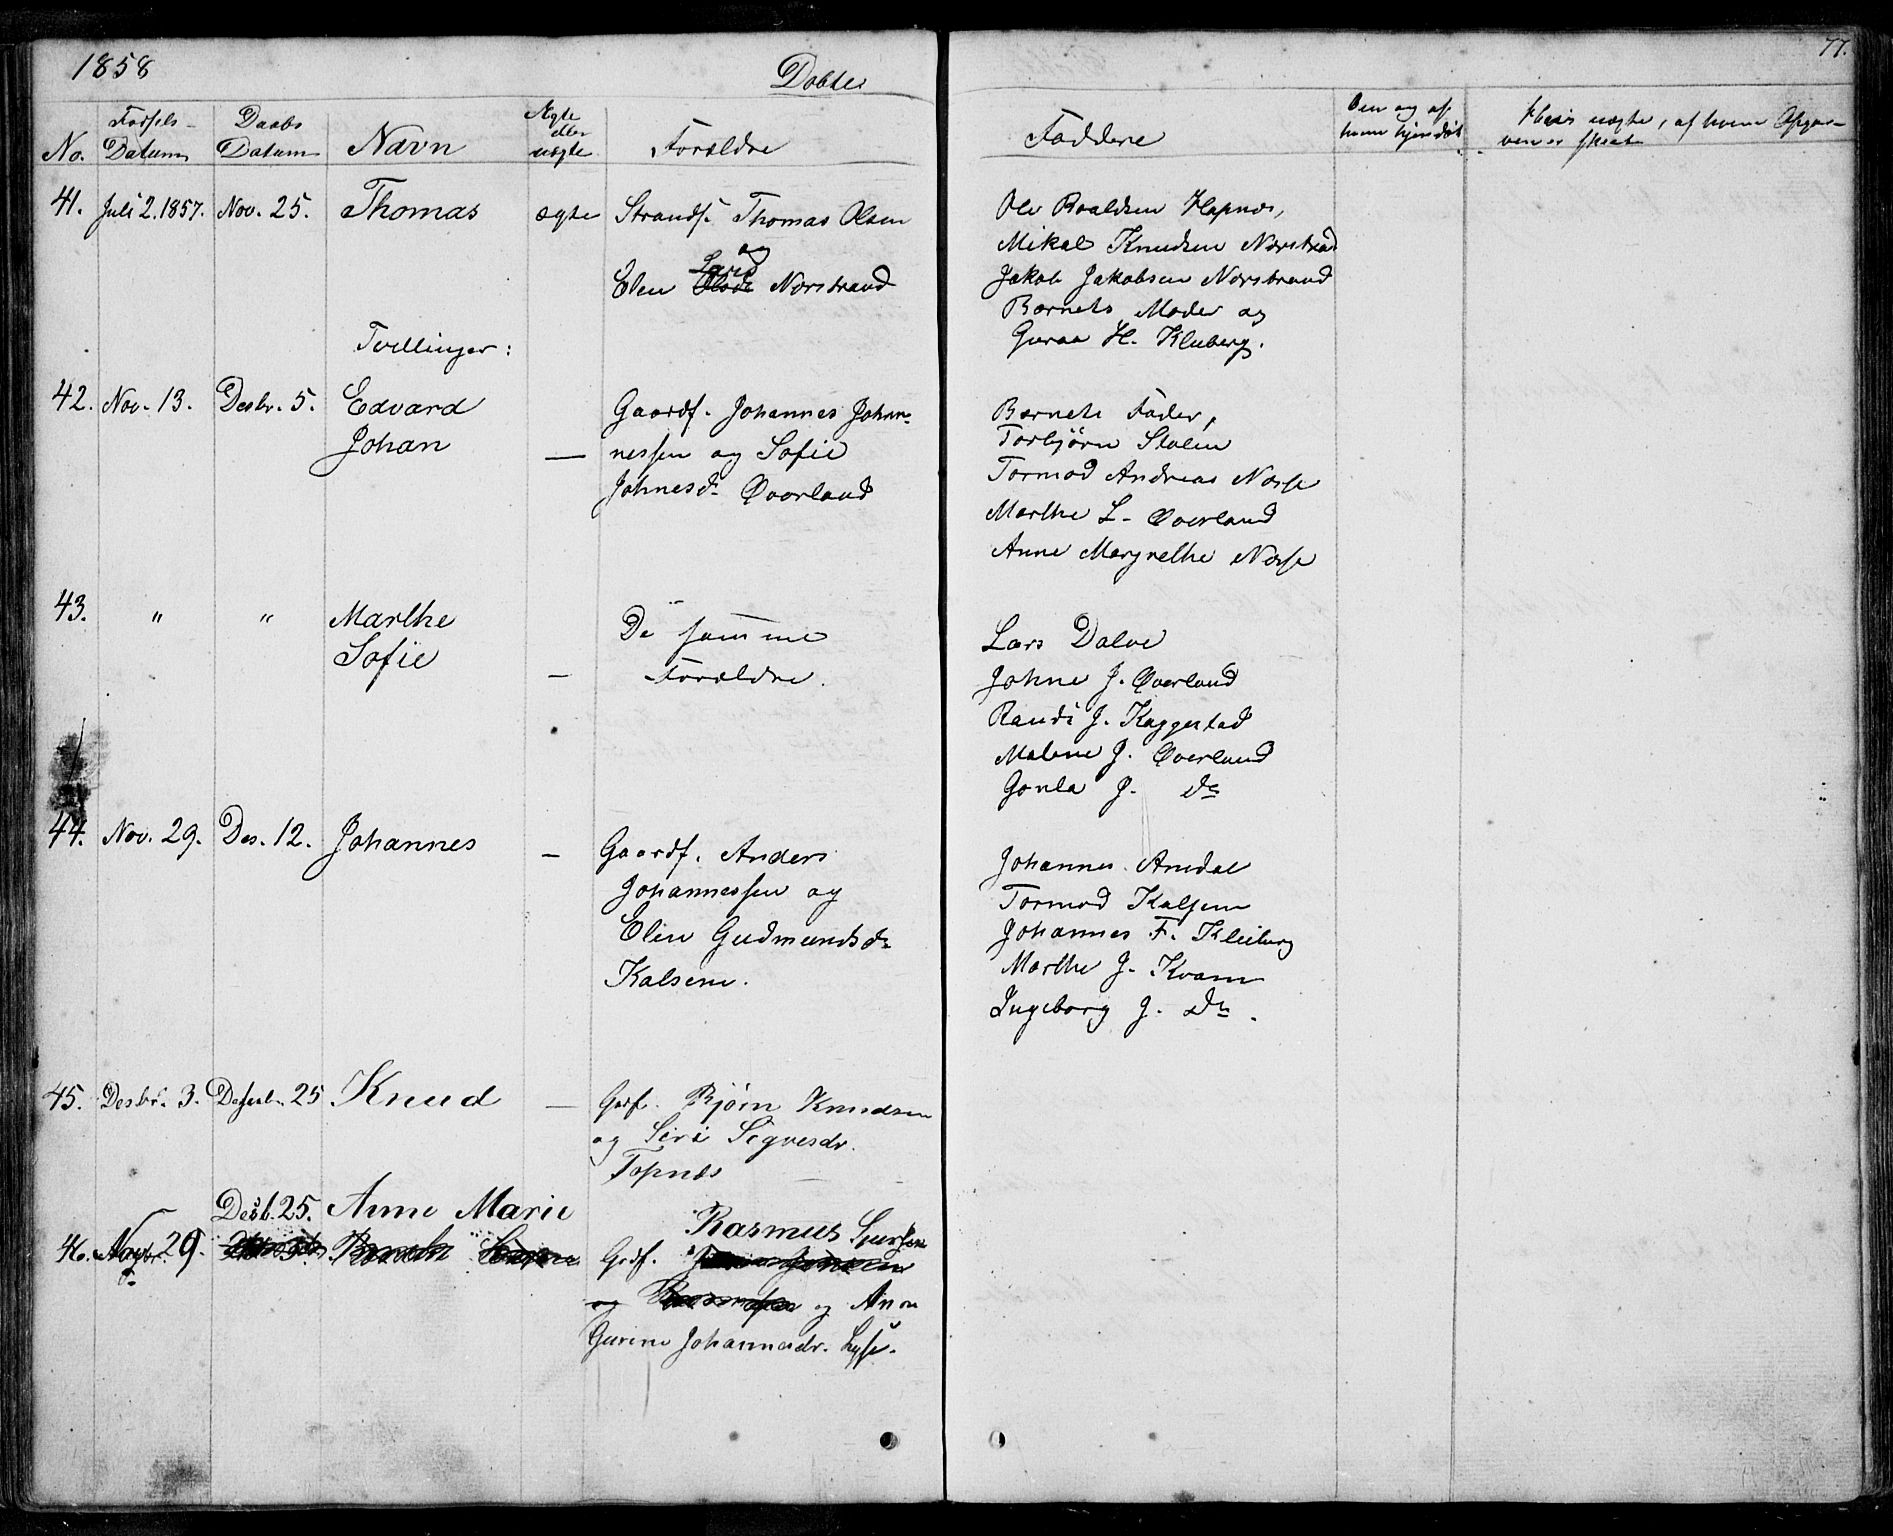 1858
Døbte
77.
No.
Fødsels-
Datum
Daabs
Datum
Navn
Ægte
eller
uægte
Forældre
Faddere
Om og af
hvem hjemdøbt
Hvis uægte, af hvem Opgav-
ven er skeet
41. Juli 2. 1857. Nov. 25. Thomas ægte Strands. Thomas Olsen
og
Lars
Elen Norstrand
Ole Roaldsen Hapnes,
Mikal Knudsen Norstrand
Jakob Jakobsen Norstrand
Barnets Moder og
Guroa H. Kleberg.
Tvillinger:
42. Nov. 13. Desbr. 5. Edvard
Johan
— Gaardf. Johannes Johan-
nessen og Sofie
Johnesd. Øverland
Barnets Fader,
Torbjørn Stølen
Tormod Andreas Næsse
Marthe L. Øverland
Anne Margrethe Næsse
43. " " Marthe
Sofie
— De samme
Forældre.
Lars Dalve
Johne J. Øverland
Randi J. Kaggestad
Malene J. Øverland
Gonla J. do
44. Nov. 29. Des. 12. Johannes — Gaardf. Anders
Johannessen og
Elin Gudmundsdr
Kalsem.
Johannes Amdal
Tormod Kalsem
Johannes F. Kleiberg
Marthe J. Kvam
Ingeborg J. do.
45. Desbr. 3. Desbr. 25 Knud — Gdf. Bjørn Knudsen
og Siri Sigvesdr.
Topnes
46. Novbr. 29. Desb. 25. Anne Marie
Gdf. Rasmus Sjursen
og Anne
Gurine Johannesdr. Lyse.